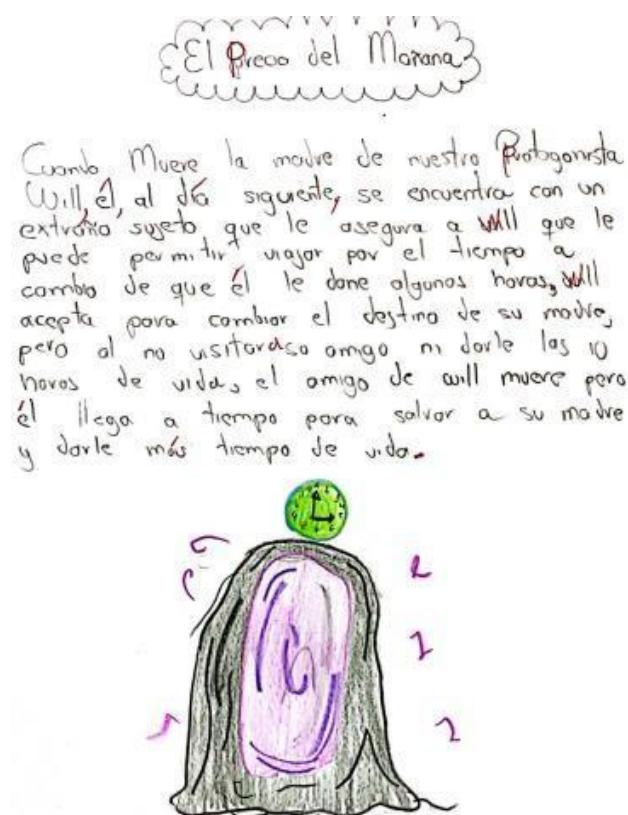 El Precio del Mañana
Cuando Muere la madre de nuestro Protagonista
Will, él, al día siguiente, se encuentra con un
extraño sujeto que le asegura a Will que le
puede permitir viajar por el tiempo a
cambio de que él le done algunas horas, Will
acepta para cambiar el destino de su madre,
pero al no visitar a su amigo ni darle las 10
horas de vida, el amigo de will muere pero
él llega a tiempo para salvar a su madre
y darle más tiempo de vida.